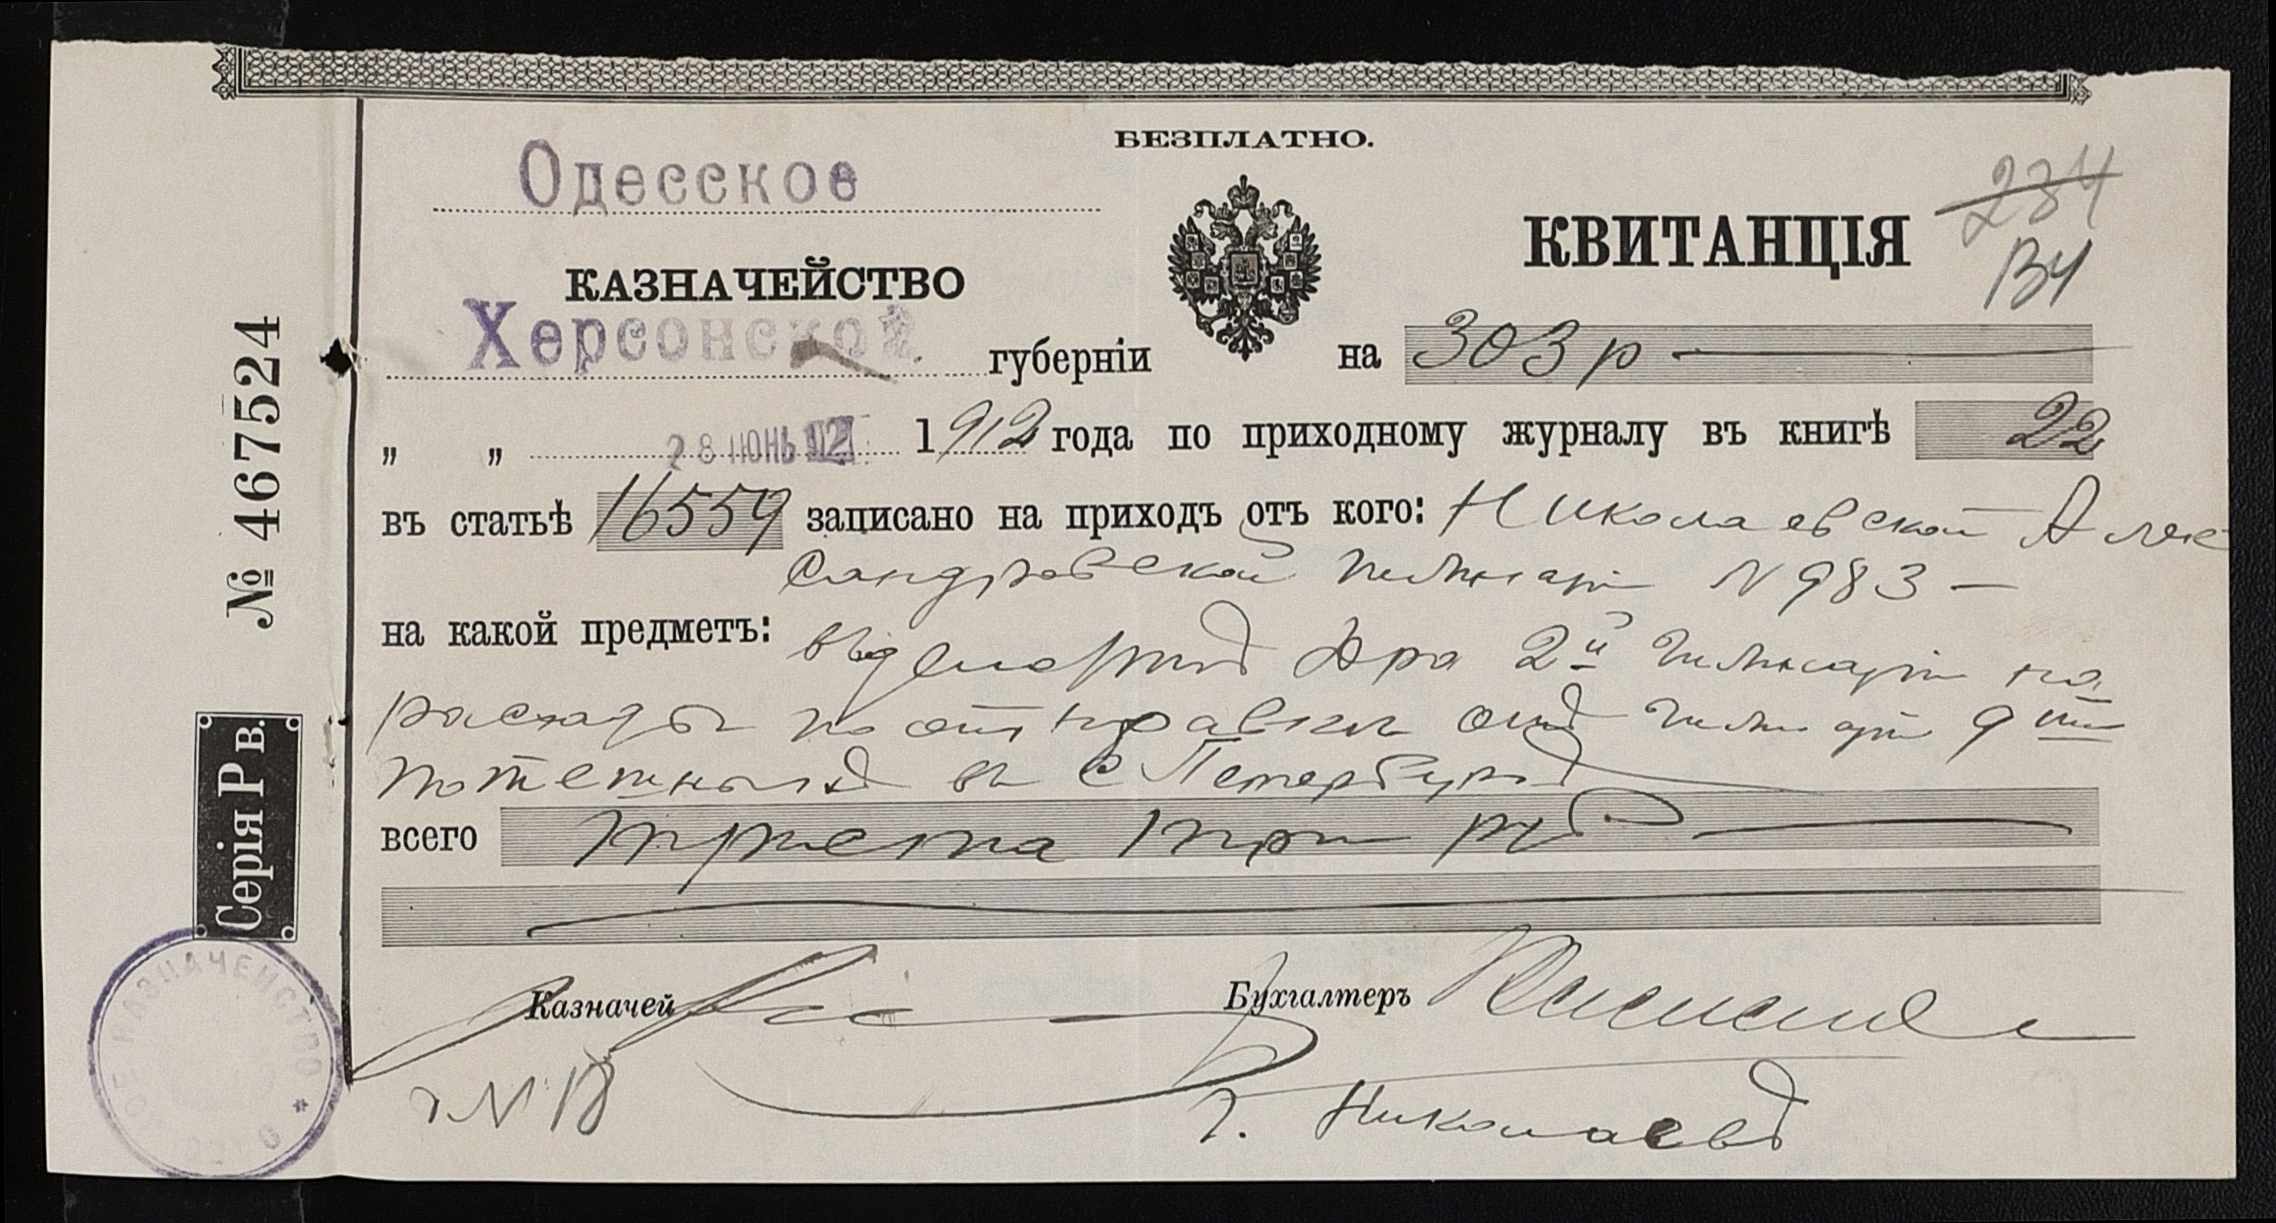 БЕЗПЛАТНО.
Одесское
КАЗНАЧЕЙСТВО
Херсонской губернiи
КВИТАНЦIЯ
234
на 303 р
„ „ 28 ІЮНЬ 912 1912 года по приходному журналу въ книгѣ 22
въ статьѣ 16559 записано на приходъ отъ кого: Николаевской Алек
сандровской гимназiи N 983 –
на какой предметъ: въ депозитъ Дра 2й гимназiи на
расходы по отправки отъ гимназiи 9ти
потешныхъ въ С Петербургъ
всего триста три руб
Казначей
Бухгалтеръ
г. Николаевъ
№ 467524
Серiя Р в.
КАЗНАЧЕЙСТВО